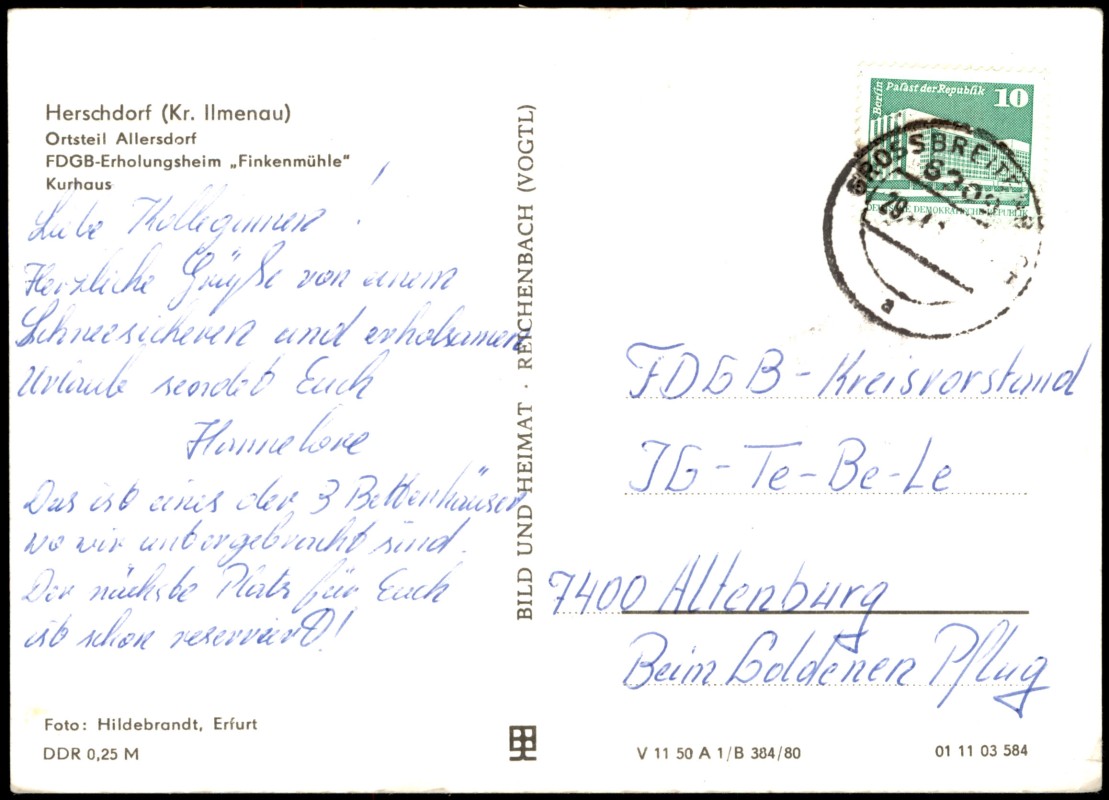 Herschdorf (Kr. Ilmenau)
Ortsteil Allersdorf
FDGB-Erholungsheim „Finkenmühle“
Kurhaus
Liebe Kolleginnen!
Herzliche Grüße von einem
Schneesicheren und erholsamen
Urlaub sendet Euch
Hannelore
Das ist eines der 3 Bettenhäuser
wo wir untergebracht sind.
Der nächste Platz für Euch
ist schon reserviert!
Foto: Hildebrandt, Erfurt
DDR 0,25 M
BILD UND HEIMAT · REICHENBACH (VOGTL)
Berlin
Palast der Republik
10
DEUTSCHE DEMOKRATISCHE REPUBLIK
GROSSBREITENB
a
FDGB-Kreisvorstand
IG-Te-Be-Le
7400 Altenburg
Beim Goldenen Pflug
V 11 50 A 1/B 384/80
01 11 03 584